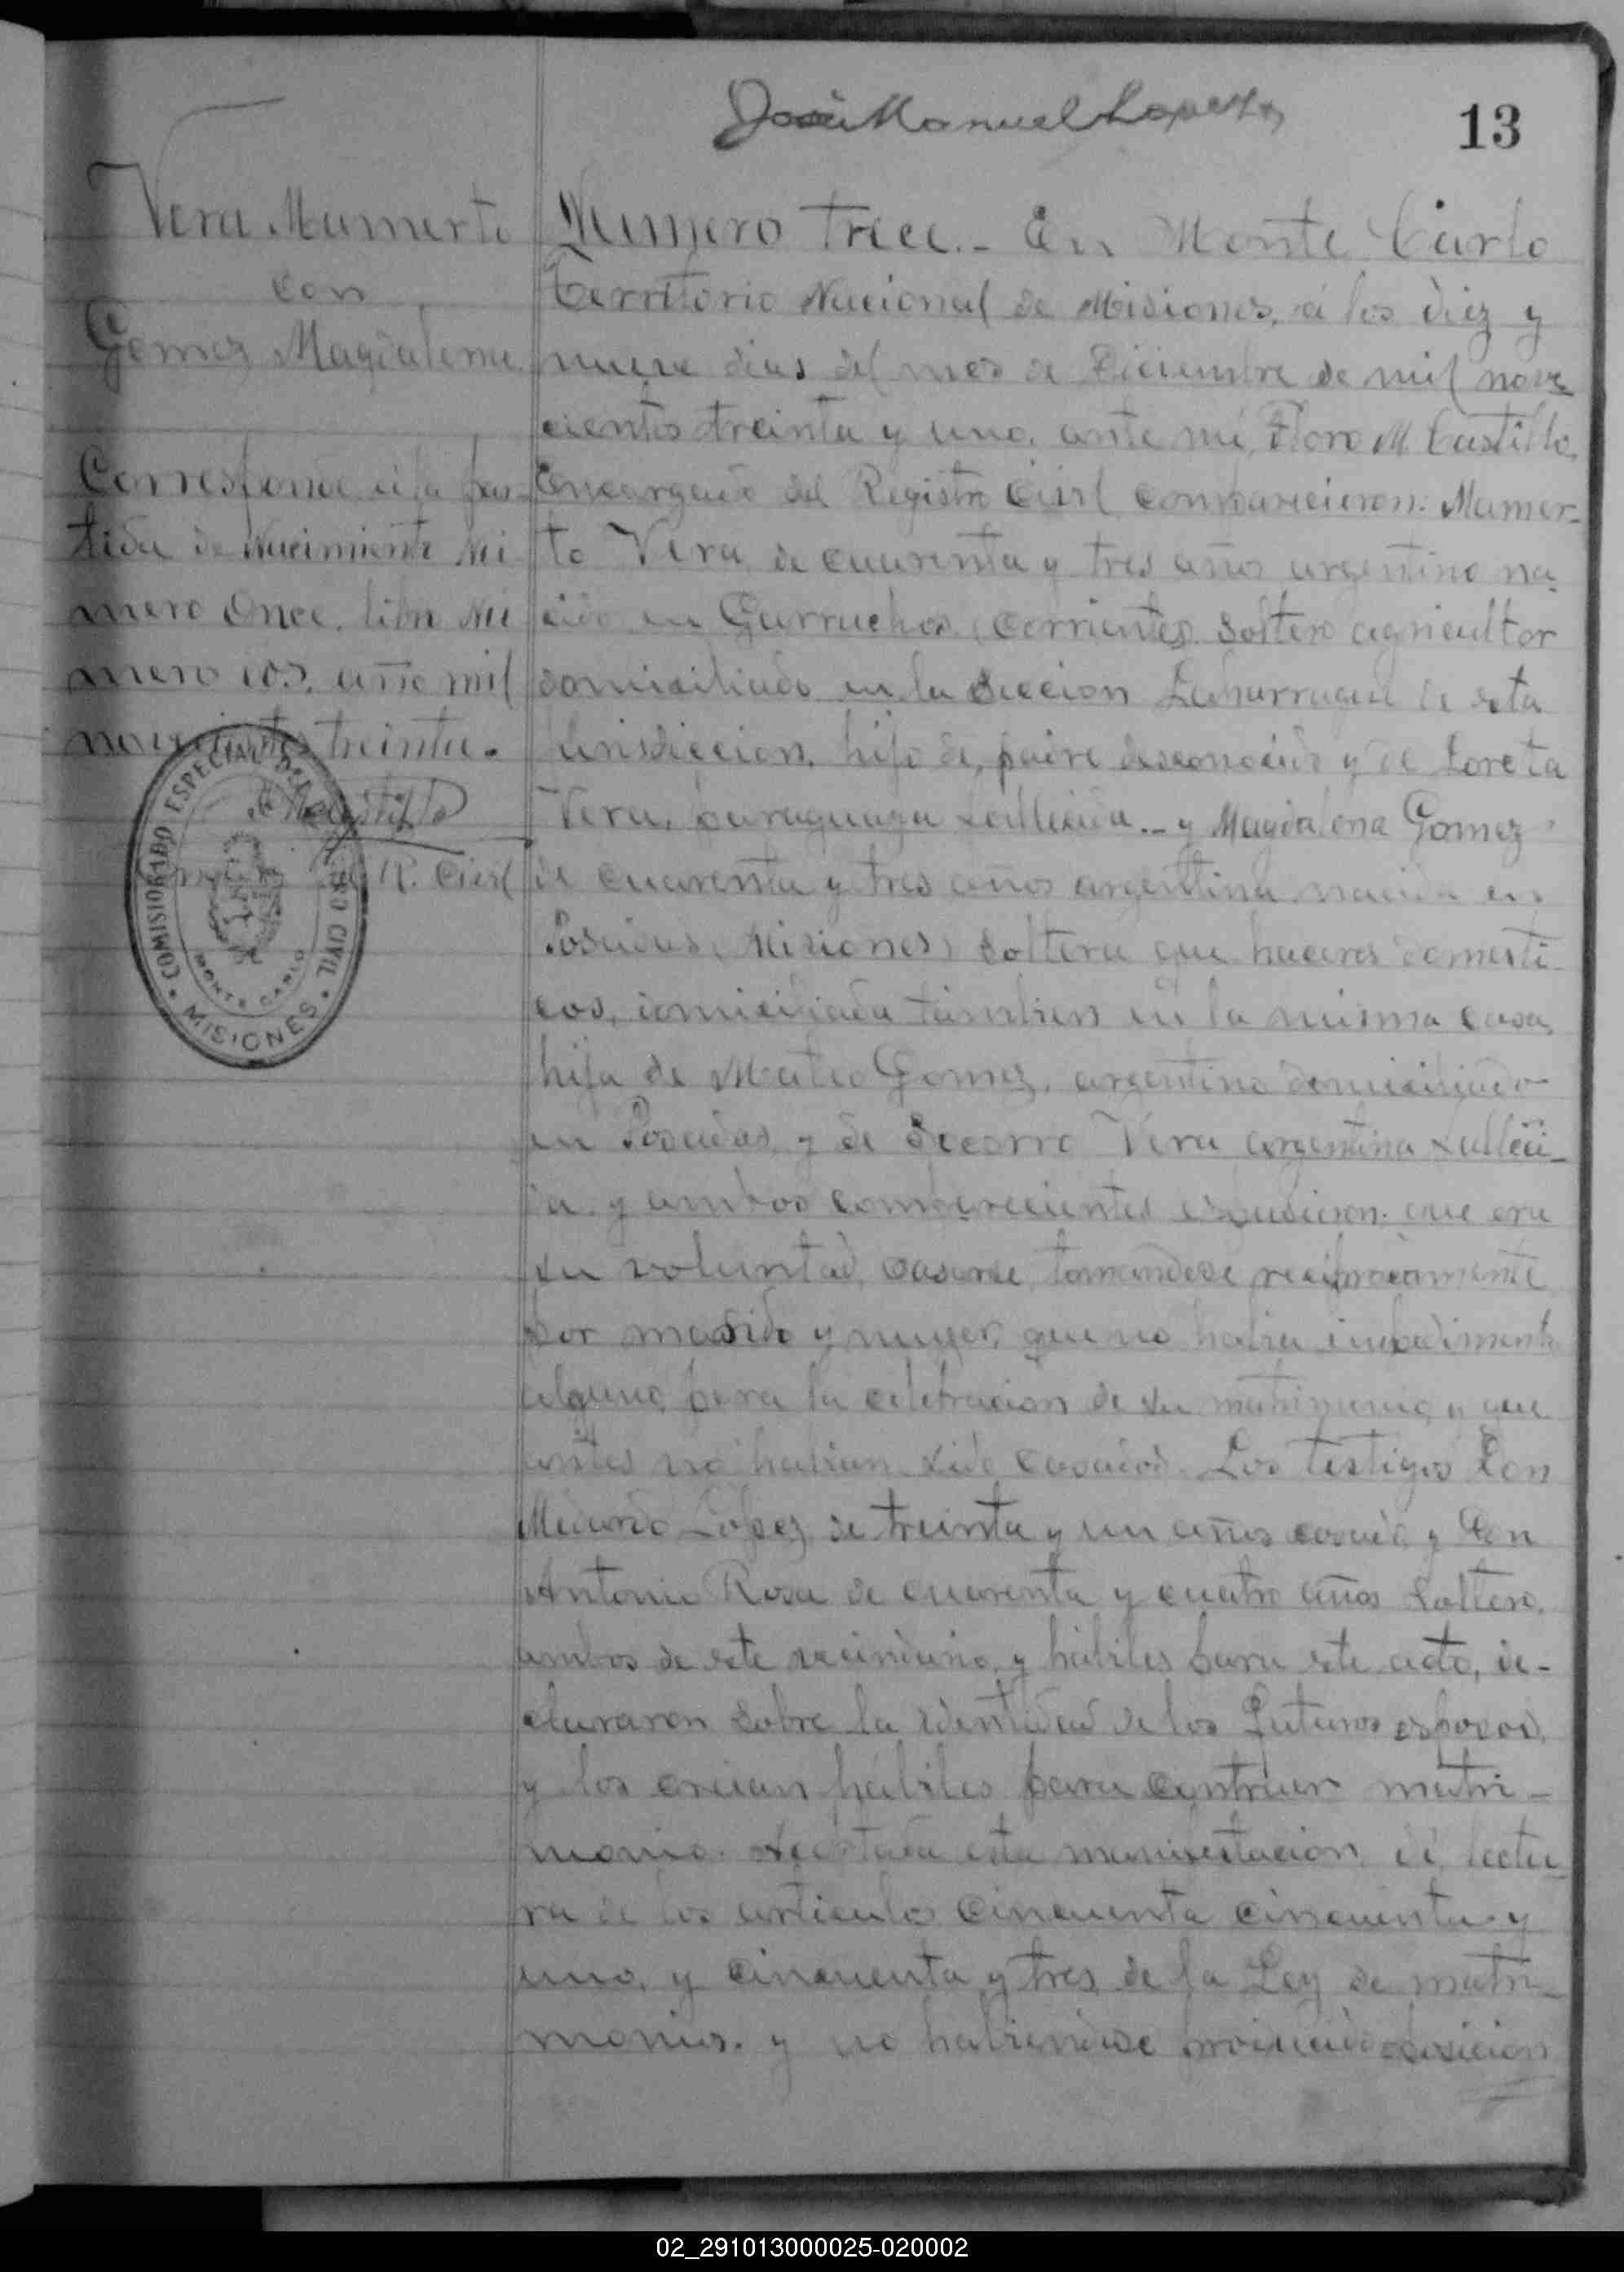 José Manuel Lopez
13
Vera Mamerto
con
Gomez Magdalena
Corresponde á la par-
tida de Nacimiento Nú
mero Once, libro Nú
mero dos, año mil
novecientos treinta.
R. Civil
COMISIONADO ESPECIAL DEL REGISTRO CIVIL
MONTE CARLO
MISIONES
Numero Trece.- En Monte Carlo
Territorio Nacional de Misiones, á los diez y
nueve dias del mes de Diciembre de mil nove
cientos treinta y uno, ante mí, Floro M. Castillo,
Encargado del Registro Civil comparecieron: Mamer-
to Vera de cuarenta y tres años argentino na-
cido en Garruchos, Corrientes, soltero agricultor
domiciliado en la seccion Laharrague de esta
jurisdiccion, hijo de padre desconocido y de Loreta
Vera, paraguaya fallecida.- y Magdalena Gomez
de cuarenta y tres años argentina nacida en
Posadas, Misiones, soltera que haceres domesti-
cos, domiciliada tambien en la misma casa,
hija de Mateo Gomez, argentino domiciliado
en Posadas, y de Socorro Vera argentina falleci-
da y ambos comparecientes expusieron: que era
su voluntad, casarse, tomandose reciprocamente
por marido y mujer, que no habia impedimento
alguno, para la celebracion de su matrimonio, y que
antes no habian sido casados. Los testigos Don
Medardo Lopez, de treinta y un años casado, y Don
Antonio Rosa de cuarenta y cuatro años soltero,
ambos de este vecindario, y habiles para este acto, de-
clararon sobre la identidad de los futuros esposos,
y los creian habiles para contraer matri-
monio. esta manifestacion, di lectu-
ra de los articulos cincuenta cincuenta y
uno, y cincuenta y tres, de la Ley de matri-
monios. y no habiendose producido oposicion
02_291013000025-020002